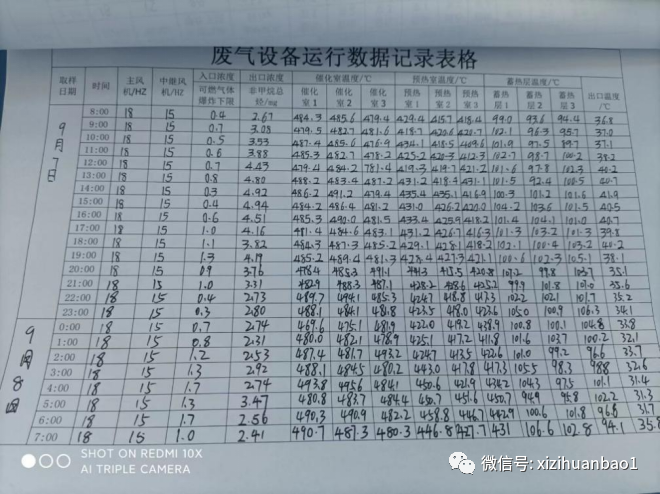 废气设备运行数据记录表格
取样日期 时间 主风机/HZ 中继风机/HZ 入口浓度 可燃气体爆炸下限 出口浓度 非甲烷总烃/mg 催化室温度/℃ 催化室1 催化室2 催化室3 预热室温度/℃ 预热室1 预热室2 预热室3 蓄热层温度/℃ 蓄热层1 蓄热层2 蓄热层3 出口温度/℃
9月7日
8:00 18 15 0.4 2.67 484.3 485.6 479.4 429.4 415.7 418.4 99.0 93.6 94.4 36.8
9:00 18 15 0.7 3.08 479.5 482.7 481.6 418.7 420.6 420.7 102.1 96.3 95.7 37.0
10:00 18 15 0.5 3.53 487.4 485.6 476.9 434.1 418.5 409.6 101.9 97.5 89.7 37.1
11:00 18 15 0.6 3.88 485.3 482.7 478.2 425.2 420.3 412.3 102.7 98.7 100.2 38.2
12:00 18 15 0.7 4.43 479.4 484.2 781.4 419.3 419.7 421.2 101.6 97.8 102.3 40.2
13:00 18 15 0.8 4.80 488.2 483.4 487.2 431.2 418.4 431.1 101.5 92.4 100.5 40.7
14:00 18 15 0.3 4.92 486.2 491.2 479.4 435.4 435.1 416.9 100.3 101.2 101.6 41.9
15:00 18 15 0.4 4.94 484.2 486.4 481.2 431.0 426.2 420.0 104.2 103.6 101.5 40.5
16:00 18 15 0.6 4.51 485.3 490.0 481.5 433.4 425.9 418.2 101.4 104.1 101.0 40.7
17:00 18 15 1.0 4.16 481.4 484.6 483.1 431.2 426.7 416.3 101.3 103.2 101.3 39.8
18:00 18 15 1.1 3.82 484.3 487.3 485.2 429.1 428.1 418.2 102.1 100.4 103.2 40.2
19:00 18 15 1.3 4.19 485.2 489.4 481.3 428.4 427.3 421.1 100.6 102.3 105.1 38.1
20:00 18 15 0.9 3.76 478.4 485.3 491.1 441.3 415.5 420.8 107.2 99.8 103.7 35.1
21:00 18 15 1.0 3.31 482.9 488.3 487.1 428.2 428.6 425.2 99.9 101.8 101.0 35.6
22:00 18 15 0.4 2.73 489.7 494.1 485.3 424.7 418.8 417.3 102.2 102.1 101.7 35.2
23:00 18 15 0.3 2.80 488.1 484.1 481.8 423.5 418.0 423.6 105.0 100.9 106.3 34.1
9月8日
0:00 18 15 0.7 2.74 469.6 475.1 481.9 422.0 419.2 438.9 100.8 100.1 104.8 33.8
1:00 18 15 0.8 2.31 480.0 482.1 478.9 425.1 417.2 411.8 101.6 103.7 100.2 32.1
2:00 18 15 1.2 2.53 487.4 481.7 493.2 424.7 413.5 422.6 101.0 99.2 96.6 33.7
3:00 18 15 1.3 2.92 488.1 484.5 480.2 443.0 417.8 417.3 105.5 98.3 98.8 32.6
4:00 18 15 1.7 2.74 493.8 495.6 484.1 450.6 421.9 434.2 104.3 97.5 101.1 31.4
5:00 18 15 1.3 3.47 480.8 483.7 484.4 450.7 451.6 450.7 94.9 95.8 102.2 31.3
6:00 18 15 1.7 2.56 490.3 490.9 482.2 458.8 446.7 442.9 100.6 101.8 96.8 31.7
7:00 18 15 1.0 2.41 490.7 487.3 480.3 446.8 427.7 431 106.6 102.8 94.1 35.8
SHOT ON REDMI 10X
AI TRIPLE CAMERA
微信号: xizihuanbao1